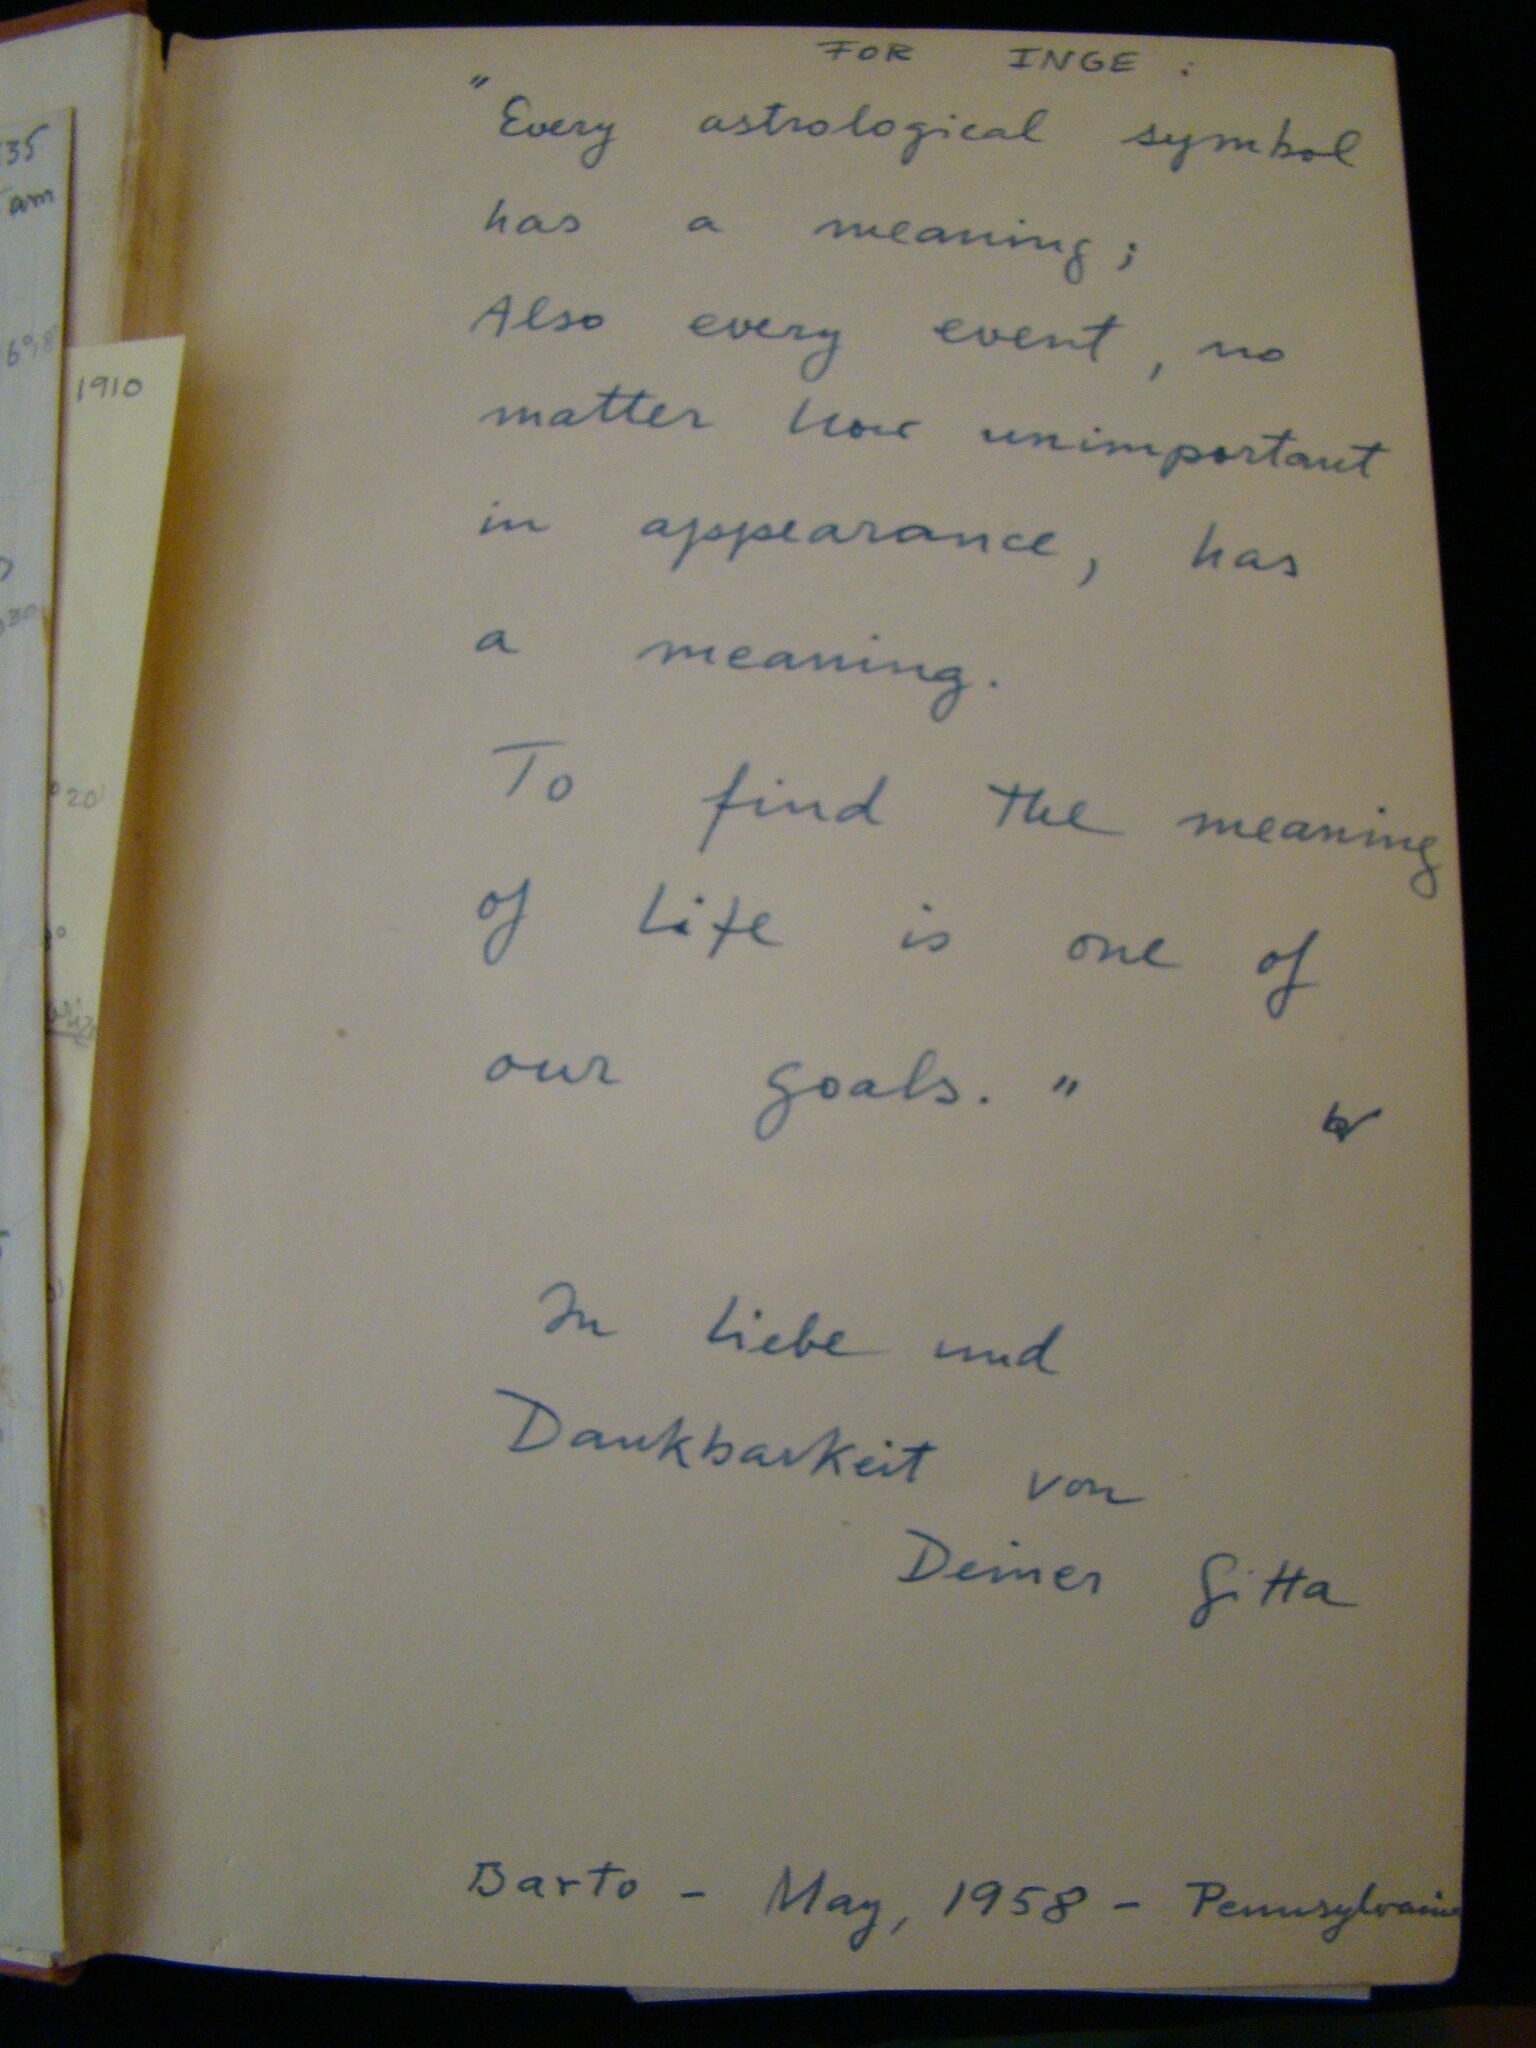 35
am
6°,8'
1910
20'
FOR INGE :
"Every astrological symbol
has a meaning;
Also every event, no
matter how unimportant
in appearance, has
a meaning.
To find the meaning
of Life is one of
our goals."
In Liebe und
Dankbarkeit von
Deiner Gitta
Barto - May, 1958 - Pennsylvania